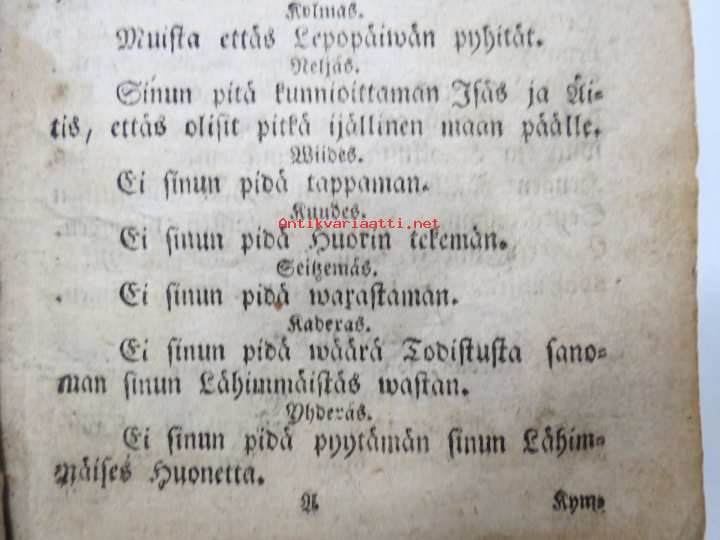 Kolmas.
Muista ettäs Lepopäiwän pyhität.
Neljäs.
Sinun pitä kunnioittaman Isäs ja Äi-
tis, ettäs olisit pitkä ijällinen maan päälle.
Wiides.
Ei sinun pidä tappaman.
Kuudes.
Antikvariaatti.net
Ei sinun pidä Huorin tekemän.
Seitzemäs.
Ei sinun pidä warastaman.
Kadexas.
Ei sinun pidä wäärä Todistusta sano-
man sinun Lähimmäistäs wastan.
Yhdexäs.
Ei sinun pidä pyytämän sinun Lähim-
mäises Huonetta.
A
Kym-